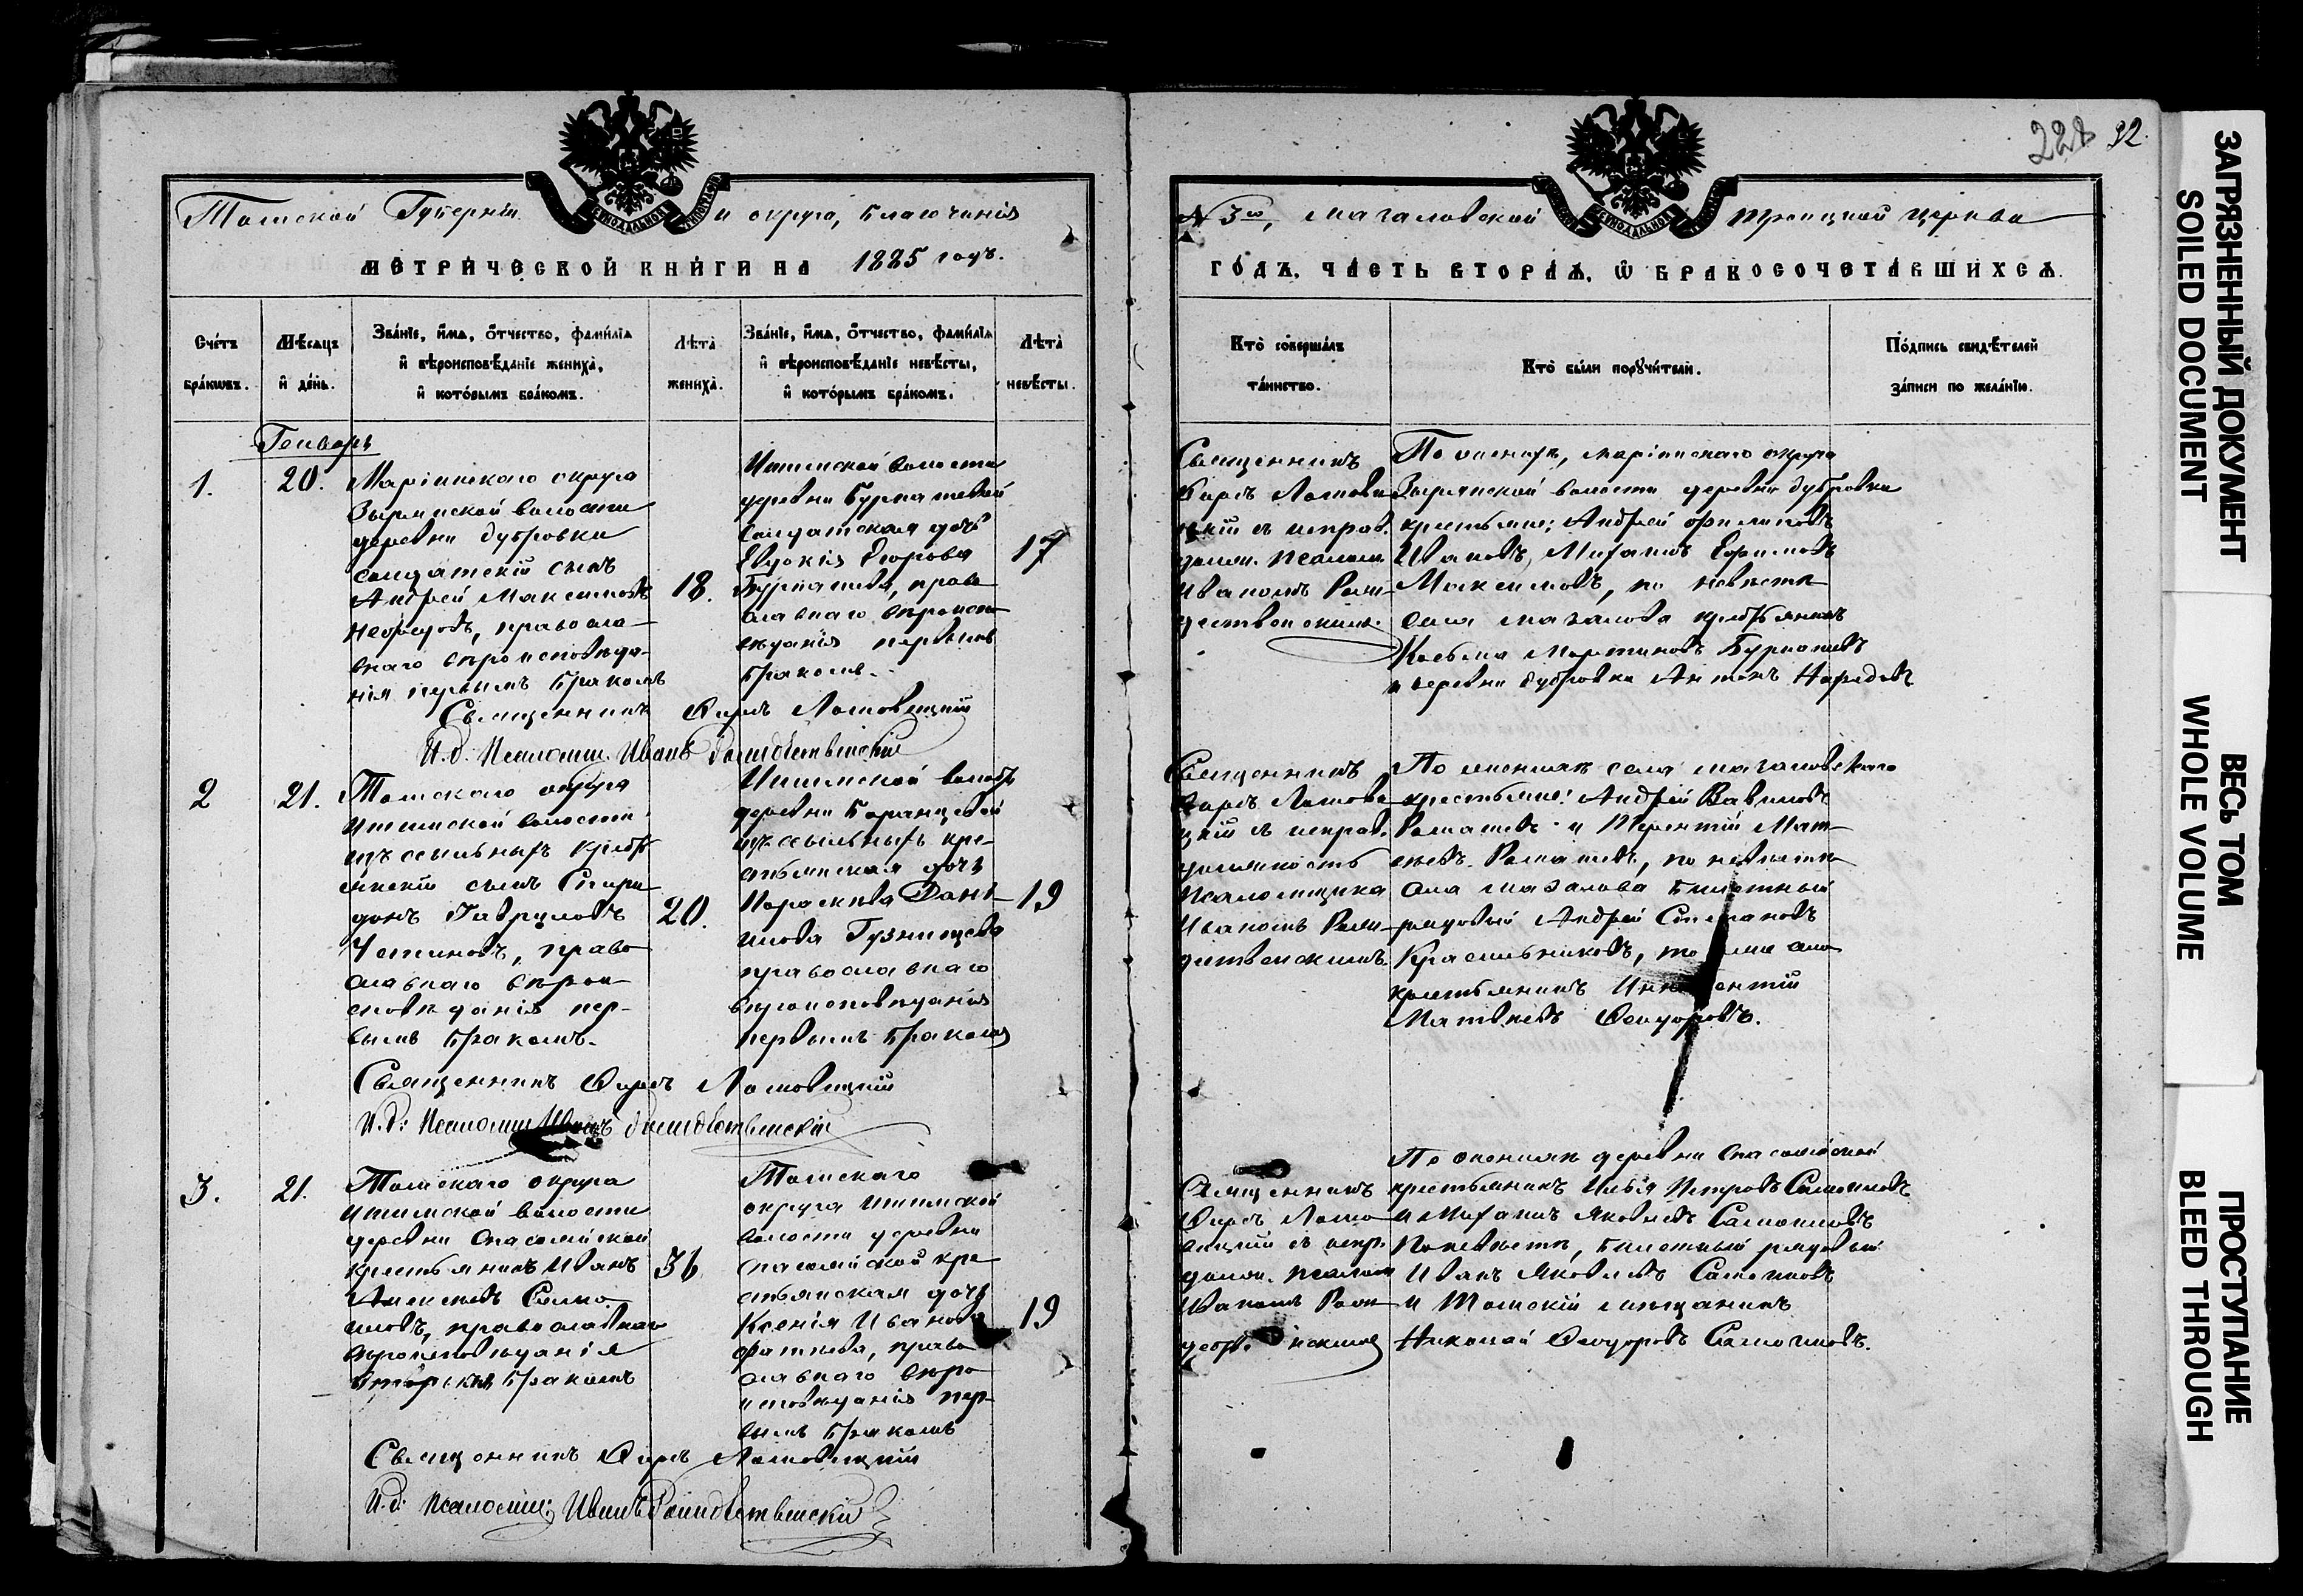 Томской Губерніи и округа, благочинія
МЕТРИЧЕСКОЙ КНИГИ НА 1885 годъ.
Счетъ браковъ.
Мѣсяцъ и день.
Званіе, имя, отчество, фамилія
и вѣроисповѣданіе жениха,
и которымъ бракомъ.
Лѣта жениха.
Званіе, имя, отчество, фамилія
и вѣроисповѣданіе невѣсты,
и которымъ бракомъ.
Лѣта невѣсты.
Генварь
1.
20.
Маріинскаго округа
Зырянской волости
деревни Дубровки
солдатскій сынъ
Андрей Максимовъ
правосла-
внаго вѣроисповѣда-
нія первымъ бракомъ
18.
Ишимской волости
деревни
солдатская дочь
Евдокія Егорова
право
славнаго вѣроиспо
вѣданія первымъ
бракомъ.
17
Священникъ Ломовицкій
И. д. Псаломщ. Иванъ Рождественскій
2
21.
Томскаго округа
Ишимской волости
изъ ссыльныхъ кресть
янскій сынъ Спири
донъ Гавриловъ
Устиновъ, право
славнаго вѣрои
сповѣданія пер-
вымъ бракомъ.
20.
Ишимской волость
деревни
изъ ссыльныхъ кре-
стьянская дочь
Параскева Дані-
илова
православнаго
вѣроисповѣданія
первымъ бракомъ
19
Священникъ Ломовицкій
И. д: Псаломщ Иванъ Рождественскій
3.
21.
Томскаго округа
Ишимской волости
деревни Спасоямской
крестьянинъ Иванъ
Алексѣевъ
православнаго
вѣроисповѣданія
вторымъ бракомъ
36
Томскаго
округа Ишимской
волости деревни
Спасоямской кре
стьянская дочь
Ксенія Иванова
право
славнаго вѣро
исповѣданія пер-
вымъ бракомъ
19
Священникъ Ломовицкій
И. д: Псаломщ: Иванъ Рождественскій
228 92.
№ 3го, Мазаловской Троицкой церкви
ГОДЪ, ЧАСТЬ ВТОРАЯ, Ѿ БРАКОСОЧЕТАВШИХСЯ.
Кто совершалъ таинство.
Кто были поручители.
Подпись свидѣтелей записи по желанію.
Священникъ
Ломови
цкій съ исправ.
долж. Псаломщ.
Иваномъ Рож-
дественскимъ.
По женихѣ, Маріинскаго округа
Зырянской волости деревни Дубровки
крестьяне: Андрей Филиповъ
Ивановъ, Михаилъ Ефимовъ
Максимовъ, по невѣстѣ
села Мазалова крестьянинъ
Косьма Мартиновъ
и деревни Дубровки Антонъ
Священникъ
Ломови
цкій съ исправ.
должность
Псаломщика
Иваномъ Рож-
дественскимъ.
По женихѣ села Мазаловскаго
крестьяне: Андрей Вавиловъ
Ромашевъ и Терентій Мат-
вѣевъ Ромашевъ, по невѣстѣ
села Мазалова билетный
рядовый Андрей Степановъ
Красильниковъ,
крестьянинъ
Матвѣевъ Ѳеодоровъ.
Священникъ
Ломо
вицкій съ испр.
долж. Псаломщ
Иваномъ Рож
По женихѣ деревни Спасоямской
крестьянинъ Илья Петровъ
и Михаилъ Яковлевъ
По невѣстѣ, билетный рядовый
Иванъ Яковлевъ
и Томскій мѣщанинъ
Николай Ѳеодоровъ
ЗАГРЯЗНЕННЫЙ ДОКУМЕНТ
SOILED DOCUMENT
ВЕСЬ ТОМ
WHOLE VOLUME
ПРОСТУПАНИЕ
BLEED THROUGH